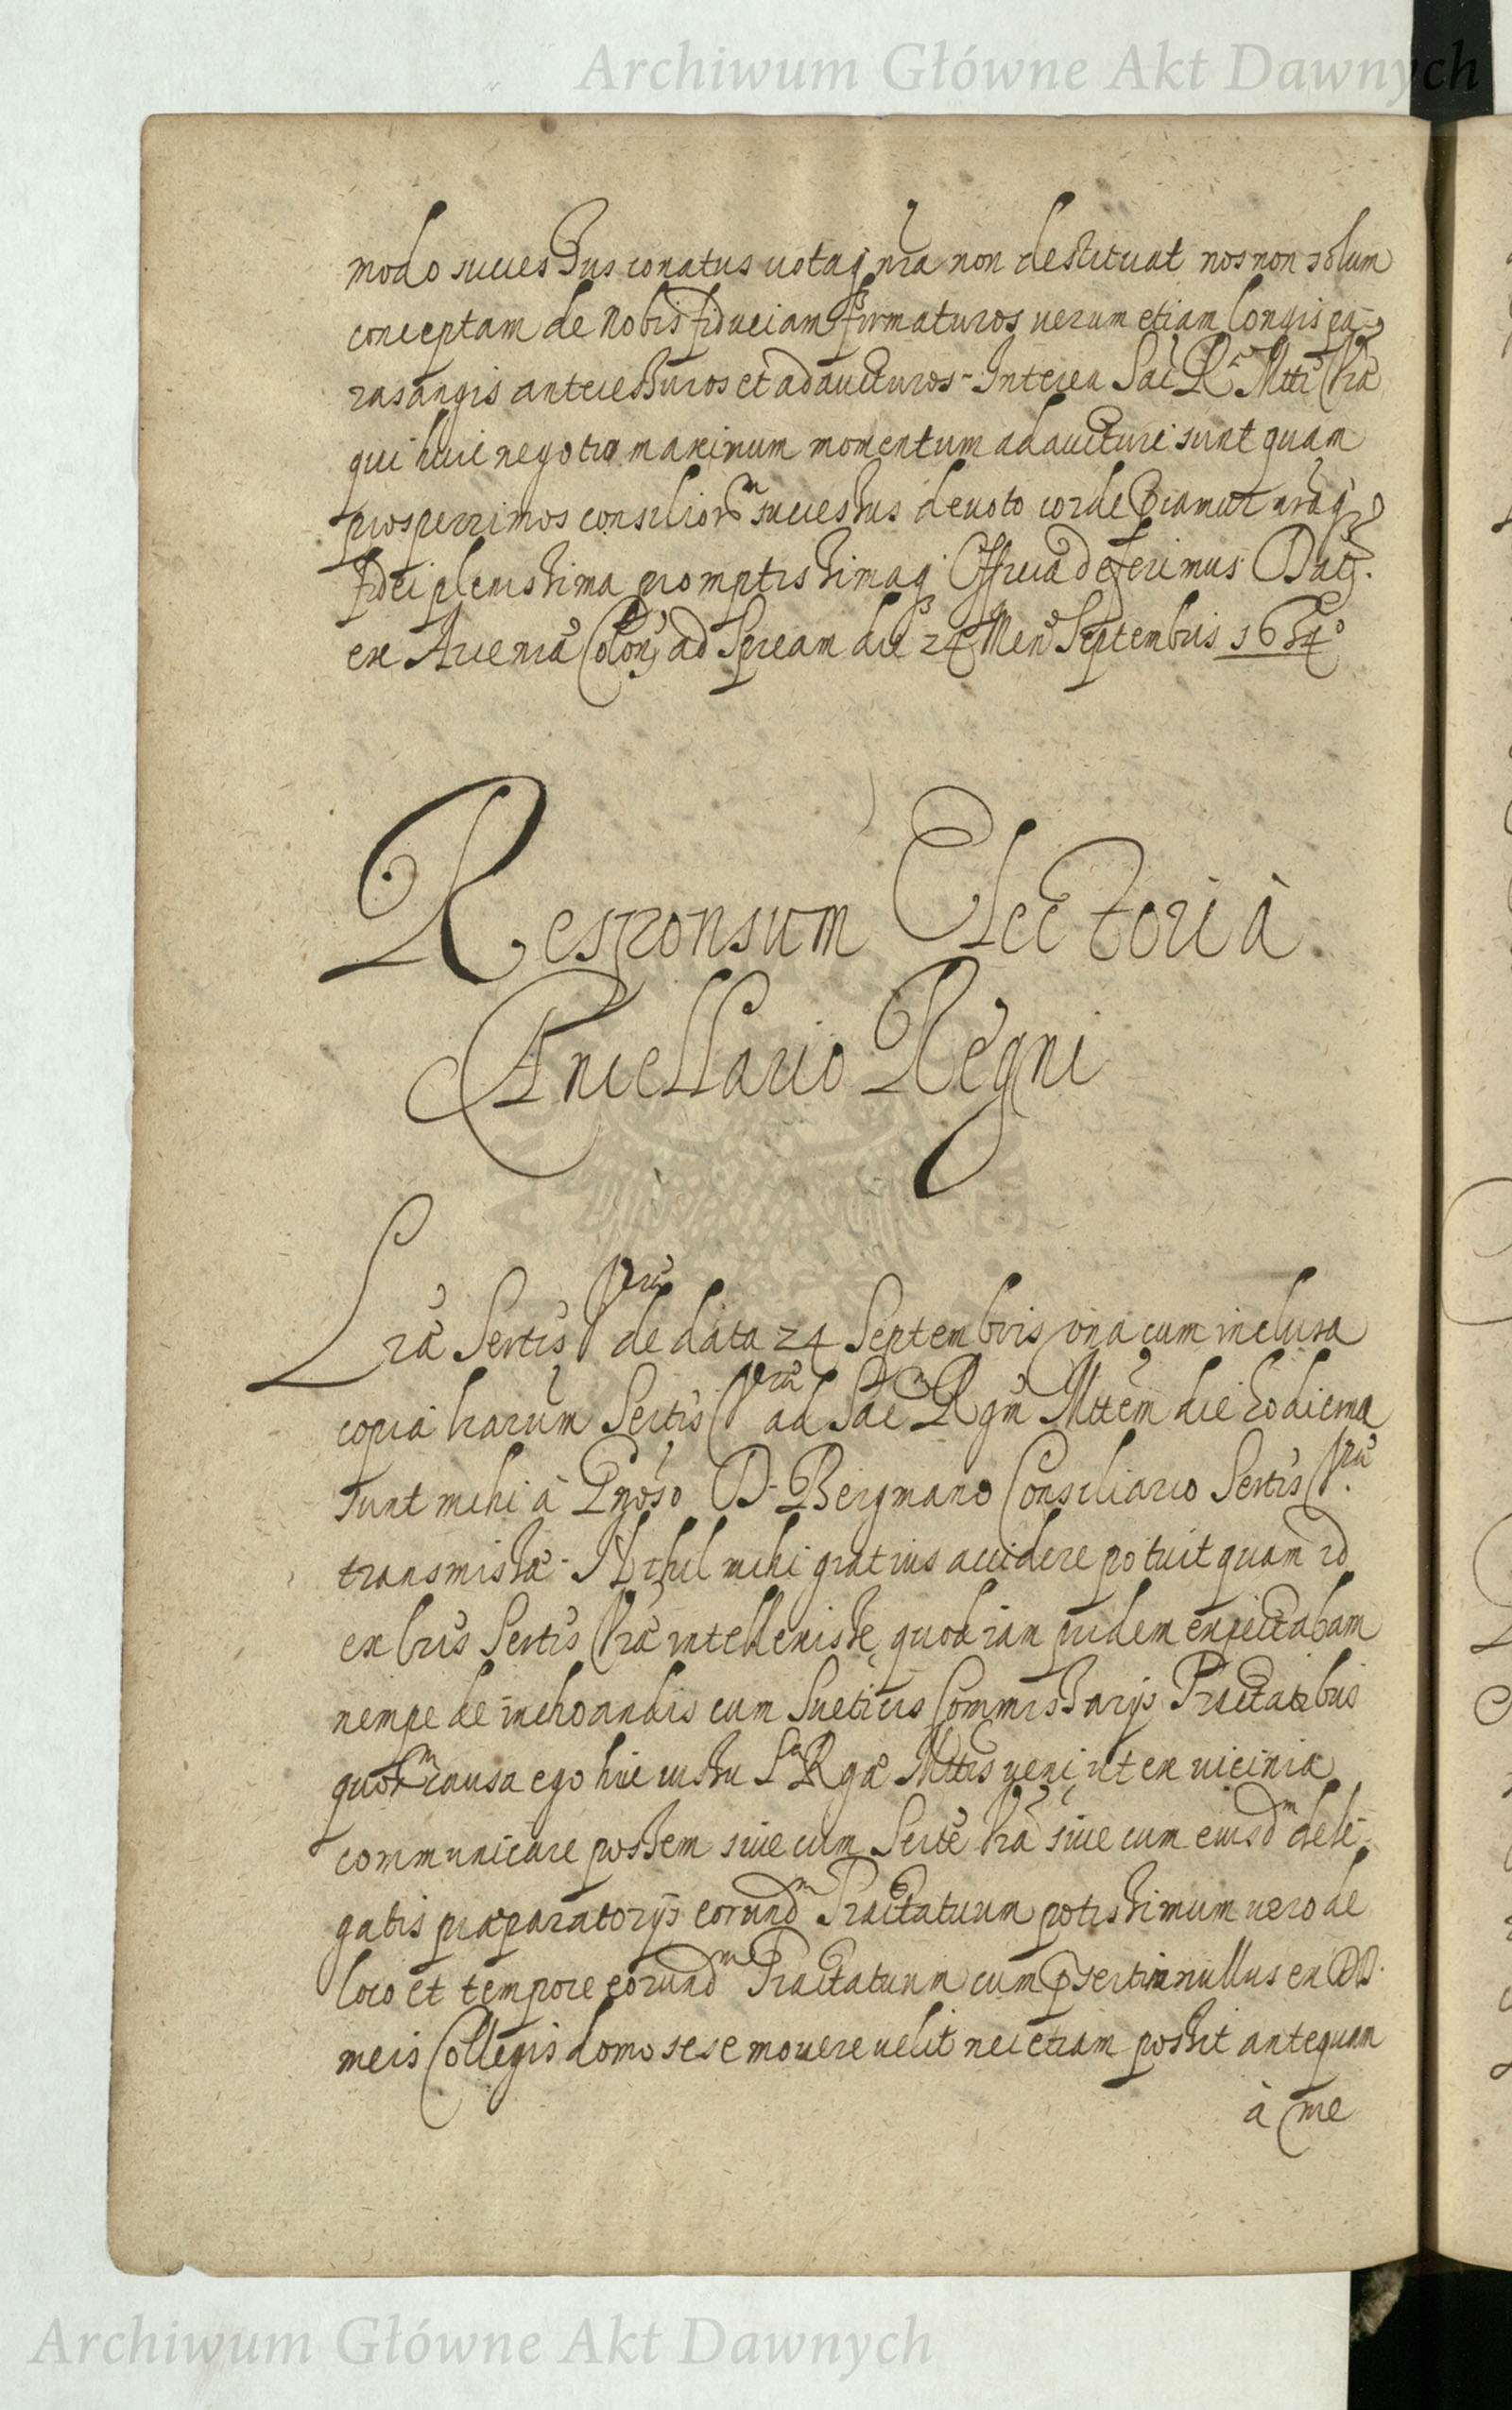 Archiwum Główne Akt Dawnych
modo successus conatus votaq nra non destituat nos non solum
conceptam de Nobis fiduciam firmaturos verum etiam longis pa-
rasangis antecessuros et adaucturos - Interea Sac Rr Mtti Vra
qui huic negotio maximum momentum adaucturi sunt quam
prosperrimos consilior̃m successus devoto corde
fidei plenissima promptissimaq Officia deferimus Dat.
ex Arce nra Colon ad Spream die 24 Mens Septembris 1654o
Responsum Electori à
Cancellario Regni
Lrã Sertis Vrã de data 24 Septembris vna cum inclusa
copia harum Sertis Vrã ad Sac Rgm Mttem die hodierna
sunt mihi à Gnoso D. Bergmano Consiliario Sertis Vrã
transmissæ - Nihil mihi gratius accidere potuit quam id
ex lris Sertis Vrã intellexisse, quod iam pridem expectabam
nempe de inchoandis cum Sueticis Commissarijs Tractatibus
quorm causa ego huc iussu Sa Rgæ Mttis veni, ut ex vicinia
communicare possem siue cum Serte Vra siue cum eiusdm dele-
gatis præparatorijs eorundm Tractatuum potissimum vero de
loco et tempore eorundm Tractatuum cum psertim nullus ex DD.
meis Collegis domo sese mouere uelit nec etiam possit antequam
à me
Archiwum Główne Akt Dawnych